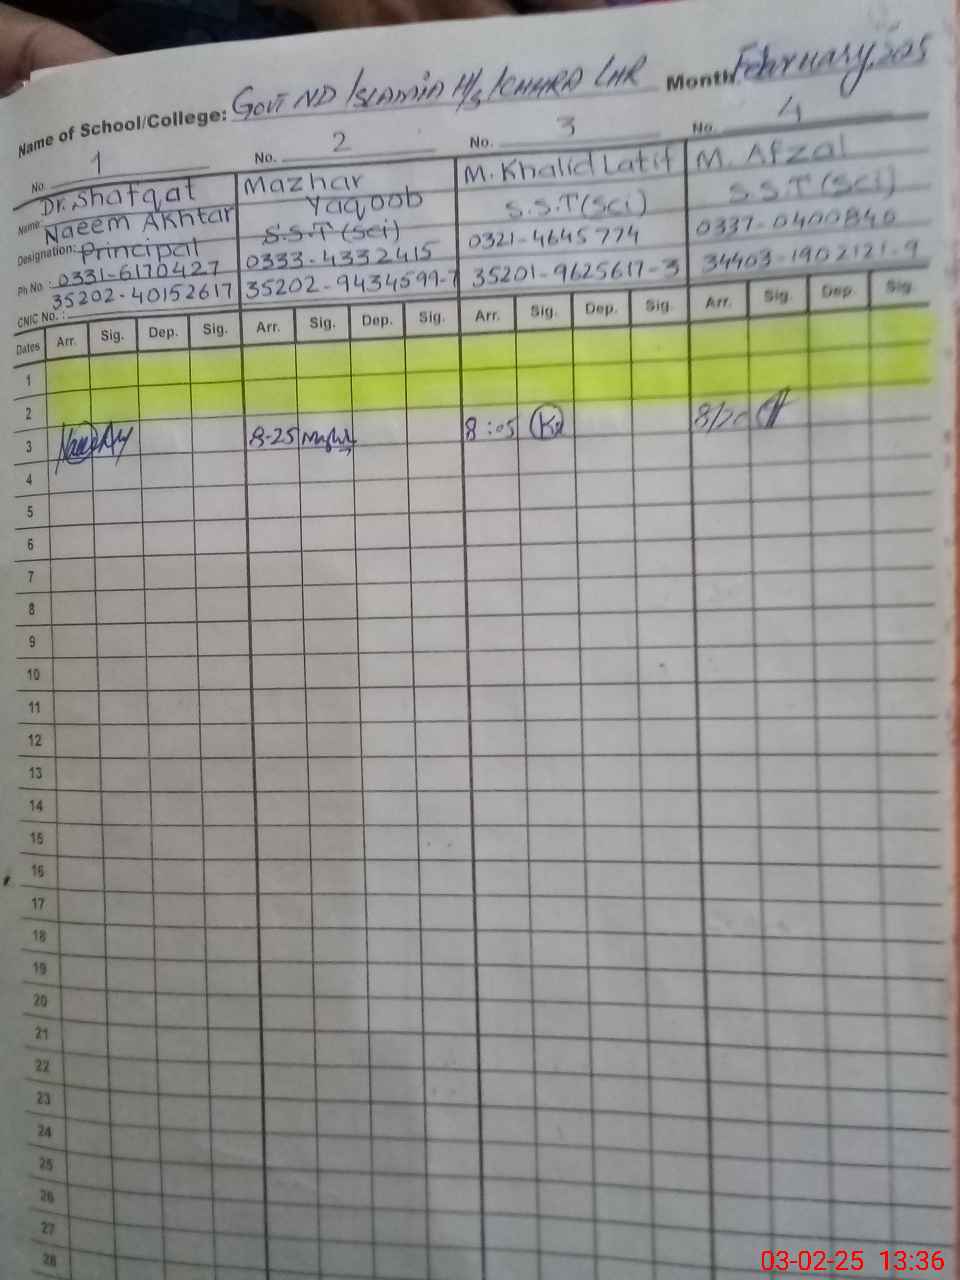 Name of School/College: GOVT ND ISLAMIA H/S ICHHRA LHR Month February, 2025
No. 1 No. 2 No. 3 No. 4
Name: Dr. Shafqat Naeem Akhtar
Designation: Principal
Ph No.: 0331-6170427
CNIC No.: 35202-40152617
Mazhar Yaqoob
S.S.T (Sci)
0333-4332415
35202-9434599-7
M. Khalid Latif
S.S.T (Sci)
0321-4645774
35201-9625617-3
M. Afzal
S.S.T (Sci)
0337-0400840
34403-1902121-9
Dates Arr. Sig. Dep. Sig. Arr. Sig. Dep. Sig. Arr. Sig. Dep. Sig. Arr. Sig. Dep. Sig.
1
2
3 8-25 8:05 8/20
4
5
6
7
8
9
10
11
12
13
14
15
16
17
18
19
20
21
22
23
24
25
26
27
28
03-02-25 13:36